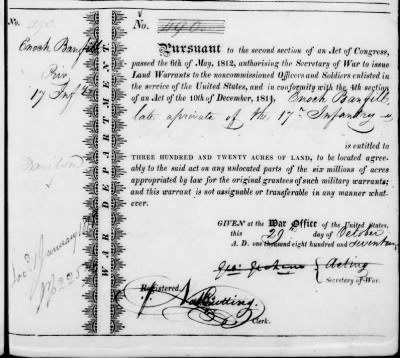 No.
No. 490
Enoch Banfill
Priv.
17 Inf
WAR DEPARTMENT.
Pursuant to the second section of an Act of Congress,
passed the 6th of May, 1812, authorising the Secretary of War to issue
Land Warrants to the noncommissioned Officers and Soldiers enlisted in
the service of the United States, and in conformity with the 4th section
of an Act of the 10th of December, 1814, Enoch Banfill
late a private of the 17th Infantry
is entitled to
THREE HUNDRED AND TWENTY ACRES OF LAND, to be located agreeably
to the said act on any unlocated parts of the six millions of acres
appropriated by law for the original grantees of such military warrants;
and this warrant is not assignable or transferable in any manner whatever.
GIVEN at the War Office of the United States,
this 29th day of October
A. D. one thousand eight hundred and seventeen
Geo: Graham Acting
Secretary of War.
Registered,
Cutting.
Clerk.